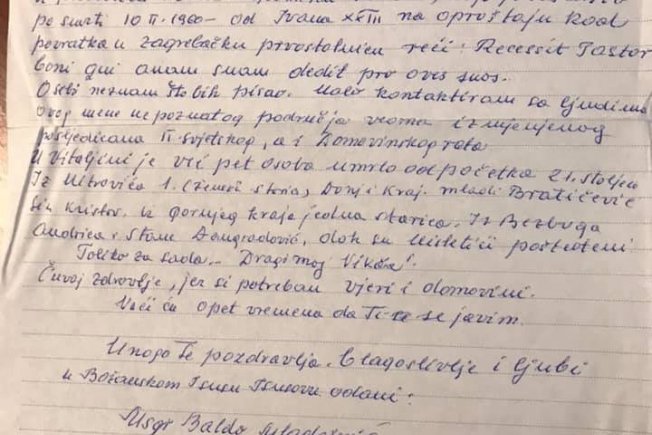 po smrti 10 II. 1960 – od Ivana XXIII na oproštaju kod
povratka u zagrebačku prvostolnicu reći: Recessit Pastor
boni qui anam suam dedit pro ovis suos.
O sebi neznam što bih pisao. Malo kontaktiram sa ljudima
ovog mene nepoznatog područja veoma izmjenjenog
posljedicama II. svjetskog, a i Domovinskog rata
U Vitaljini je već pet osoba umrlo od početka 21. stoljeća
Iz 1. Donji Kraj. mladi Bratičević
sin Kristov. iz gornjeg kraja jedna starica. Iz Bezbuga
Andrica i Stane dok su pošteđeni
Toliko za sada. – Dragi moj Vikoć!
Čuvaj zdravlje, jer si potreban vjeri i domovini.
Naći ću opet vremena da Ti se javim.
Mnogo Te pozdravlja. blagoslivlje i ljubi
u Božanskom Isusu odani:
Msgr Baldo